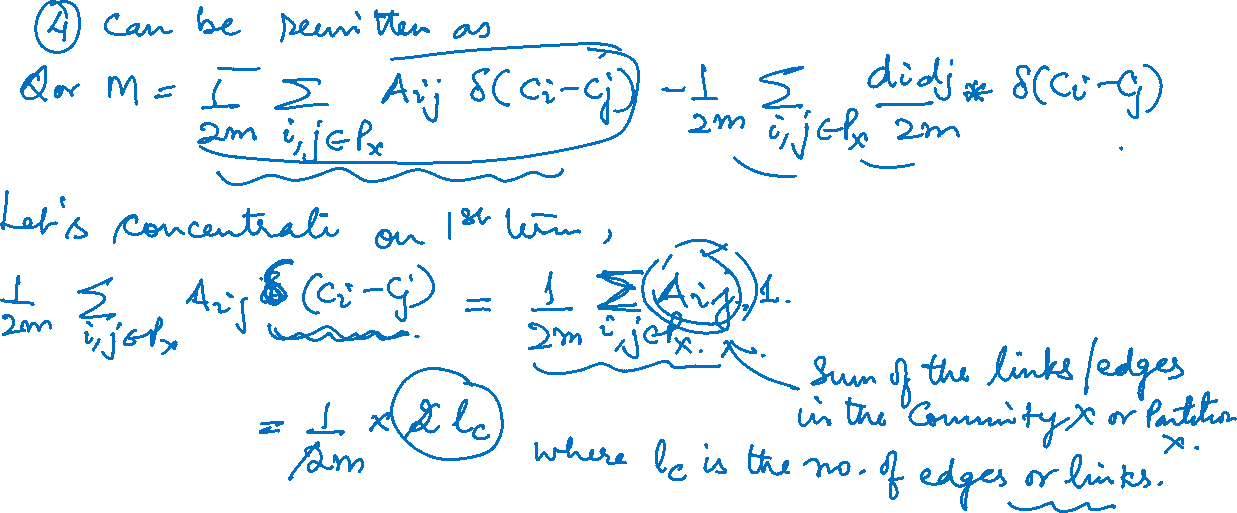 ④ can be rewritten as
Q or M = 1/2m Σ_{i,j∈Px} Aij δ(Ci-Cj) - 1/2m Σ_{i,j∈Px} didj/2m * δ(Ci-Cj)
Let's concentrate on 1st term,
1/2m Σ_{i,j∈Px} Aij δ(Ci-Cj) = 1/2m Σ_{i,j∈Px} Aij . 1.
Sum of the links/edges
in the Community X or Partition
X.
= 1/2m × 2lc
where lc is the no. of edges or links.